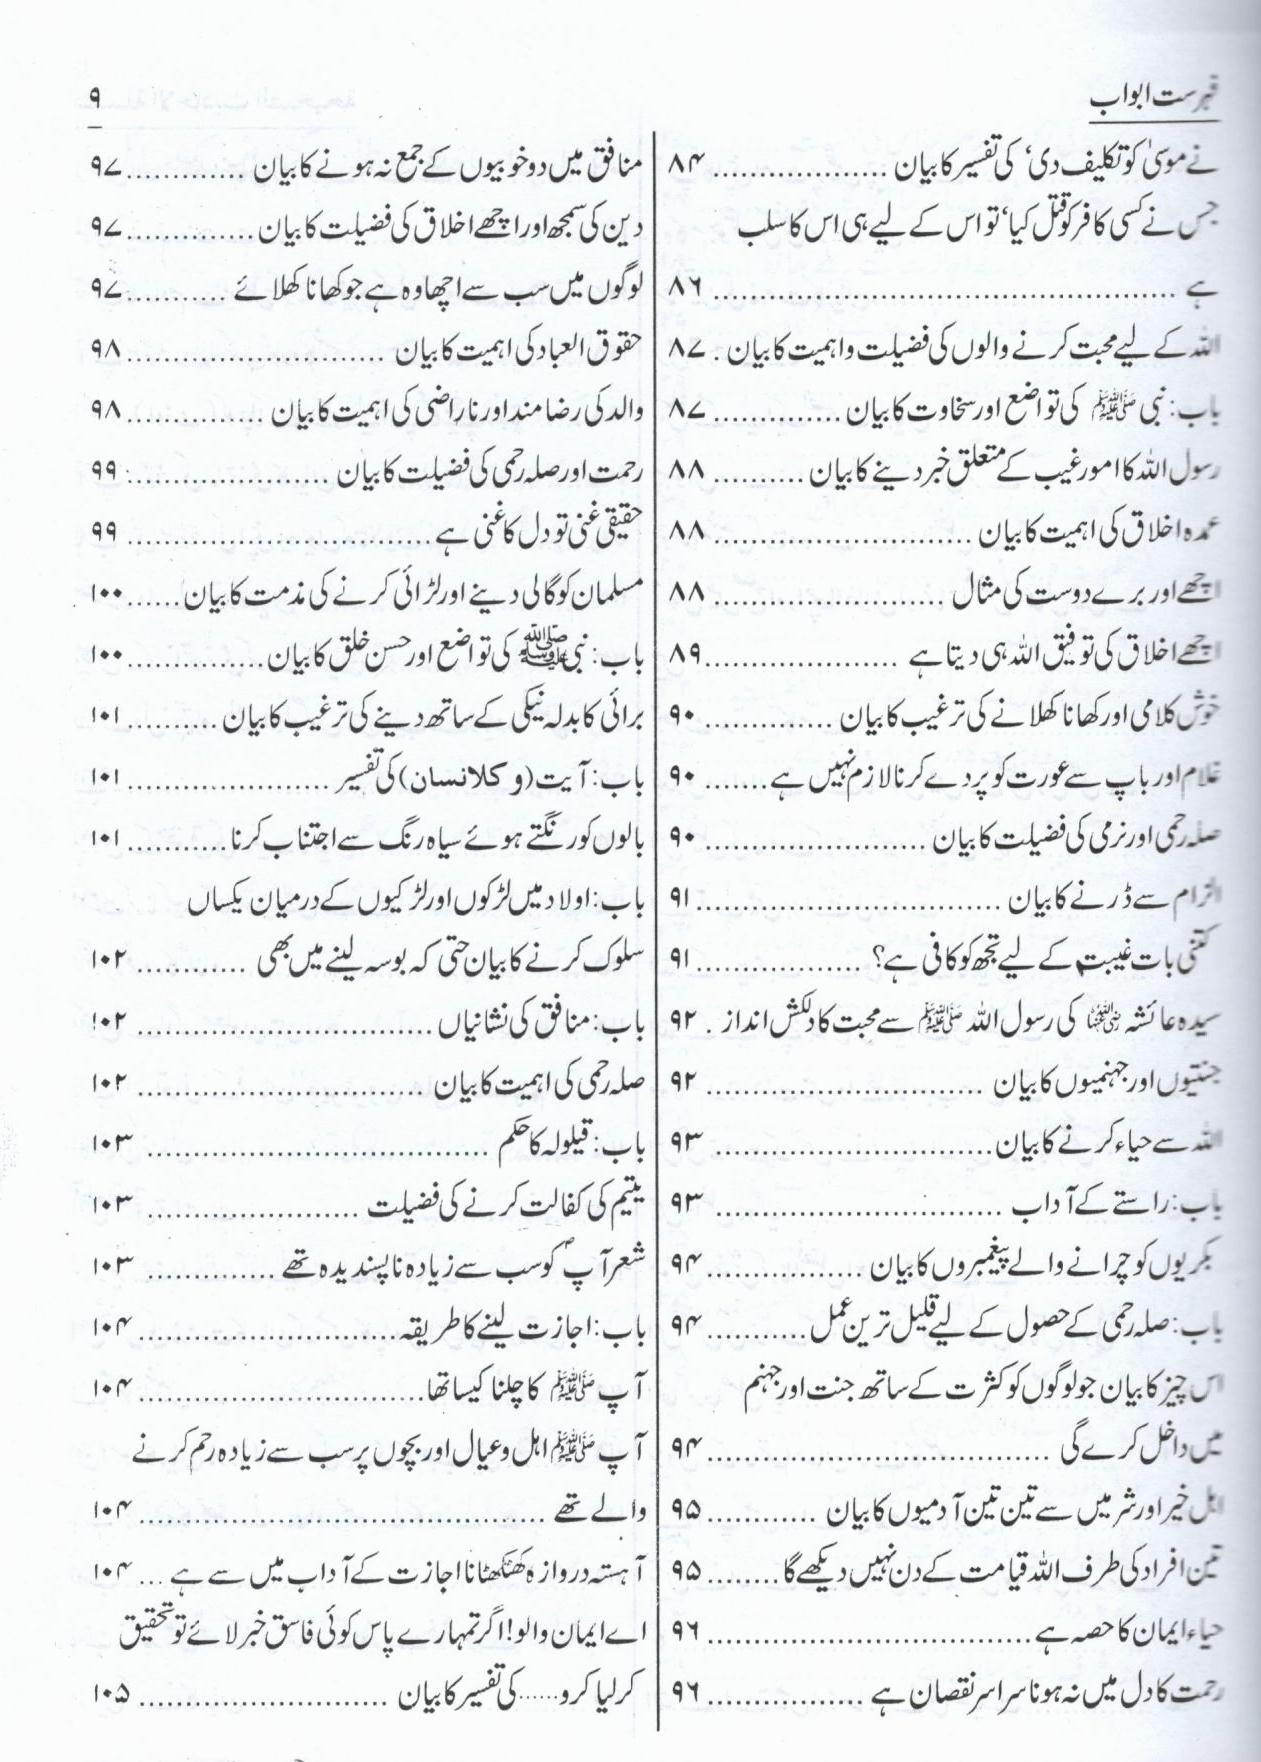 فہرست ابواب ۹
نے موسیٰ کو تکلیف دی‘ کی تفسیر کا بیان ................... ۸۴
جس نے کسی کافر کو قتل کیا‘ تو اس کے لیے ہی اس کا سلب
ہے .................................................. ۸۶
اللہ کے لیے محبت کرنے والوں کی فضیلت و اہمیت کا بیان . ۸۷
باب: نبی ﷺ کی تواضع اور سخاوت کا بیان .............. ۸۷
رسول اللہ کا امور غیب کے متعلق خبر دینے کا بیان .......... ۸۸
عمدہ اخلاق کی اہمیت کا بیان ............................ ۸۸
اچھے اور برے دوست کی مثال ......................... ۸۸
اچھے اخلاق کی توفیق اللہ ہی دیتا ہے ..................... ۸۹
خوش کلامی اور کھانا کھلانے کی ترغیب کا بیان .............. ۹۰
غلام اور باپ سے عورت کو پردے کرنا لازم نہیں ہے ....... ۹۰
صلہ رحمی اور نرمی کی فضیلت کا بیان ........................ ۹۰
الزام سے ڈرنے کا بیان ................................. ۹۱
کتنی بات غیبت کے لیے تجھ کو کافی ہے؟ .................. ۹۱
سیدہ عائشہ رضی اللہ عنہا کی رسول اللہ ﷺ سے محبت کا دلکش انداز . ۹۲
جنتیوں اور جہنمیوں کا بیان .............................. ۹۲
اللہ سے حیاء کرنے کا بیان .............................. ۹۳
باب: راستے کے آداب ............................... ۹۳
بکریوں کو چرانے والے پیغمبروں کا بیان ................. ۹۴
باب: صلہ رحمی کے حصول کے لیے قلیل ترین عمل ........... ۹۴
اس چیز کا بیان جو لوگوں کو کثرت کے ساتھ جنت اور جہنم
میں داخل کرے گی ..................................... ۹۴
اہل خیر اور شر میں سے تین تین آدمیوں کا بیان ............ ۹۵
تین افراد کی طرف اللہ قیامت کے دن نہیں دیکھے گا ........ ۹۵
حیاء ایمان کا حصہ ہے ................................... ۹۶
رحمت کا دل میں نہ ہونا سراسر نقصان ہے ................. ۹۶
منافق میں دو خوبیوں کے جمع نہ ہونے کا بیان ............. ۹۷
دین کی سمجھ اور اچھے اخلاق کی فضیلت کا بیان .............. ۹۷
لوگوں میں سب سے اچھا وہ ہے جو کھانا کھلائے ........... ۹۷
حقوق العباد کی اہمیت کا بیان ............................ ۹۸
والد کی رضا مند اور ناراضی کی اہمیت کا بیان ............... ۹۸
رحمت اور صلہ رحمی کی فضیلت کا بیان ...................... ۹۹
حقیقی غنی تو دل کا غنی ہے ................................. ۹۹
مسلمان کو گالی دینے اور لڑائی کرنے کی مذمت کا بیان ...... ۱۰۰
باب: نبی ﷺ کی تواضع اور حسن خلق کا بیان ............... ۱۰۰
برائی کا بدلہ نیکی کے ساتھ دینے کی ترغیب کا بیان .......... ۱۰۱
باب: آیت (و کلانسان) کی تفسیر ...................... ۱۰۱
بالوں کو رنگتے ہوئے سیاہ رنگ سے اجتناب کرنا ........... ۱۰۱
باب: اولاد میں لڑکوں اور لڑکیوں کے درمیان یکساں
سلوک کرنے کا بیان حتی کہ بوسہ لینے میں بھی ............ ۱۰۲
باب: منافق کی نشانیاں ................................ ۱۰۲
صلہ رحمی کی اہمیت کا بیان ............................... ۱۰۲
باب: قیلولہ کا حکم ..................................... ۱۰۳
یتیم کی کفالت کرنے کی فضیلت ....................... ۱۰۳
شعر آپؐ کو سب سے زیادہ ناپسندیدہ تھے .............. ۱۰۳
باب: اجازت لینے کا طریقہ ............................ ۱۰۴
آپ ﷺ کا چلنا کیسا تھا ............................... ۱۰۴
آپ ﷺ اہل و عیال اور بچوں پر سب سے زیادہ رحم کرنے
والے تھے ............................................ ۱۰۴
آہستہ دروازہ کھٹکھٹانا اجازت کے آداب میں سے ہے ... ۱۰۴
اے ایمان والو! اگر تمہارے پاس کوئی فاسق خبر لائے تو تحقیق
کر لیا کرو...... کی تفسیر کا بیان ........................... ۱۰۵